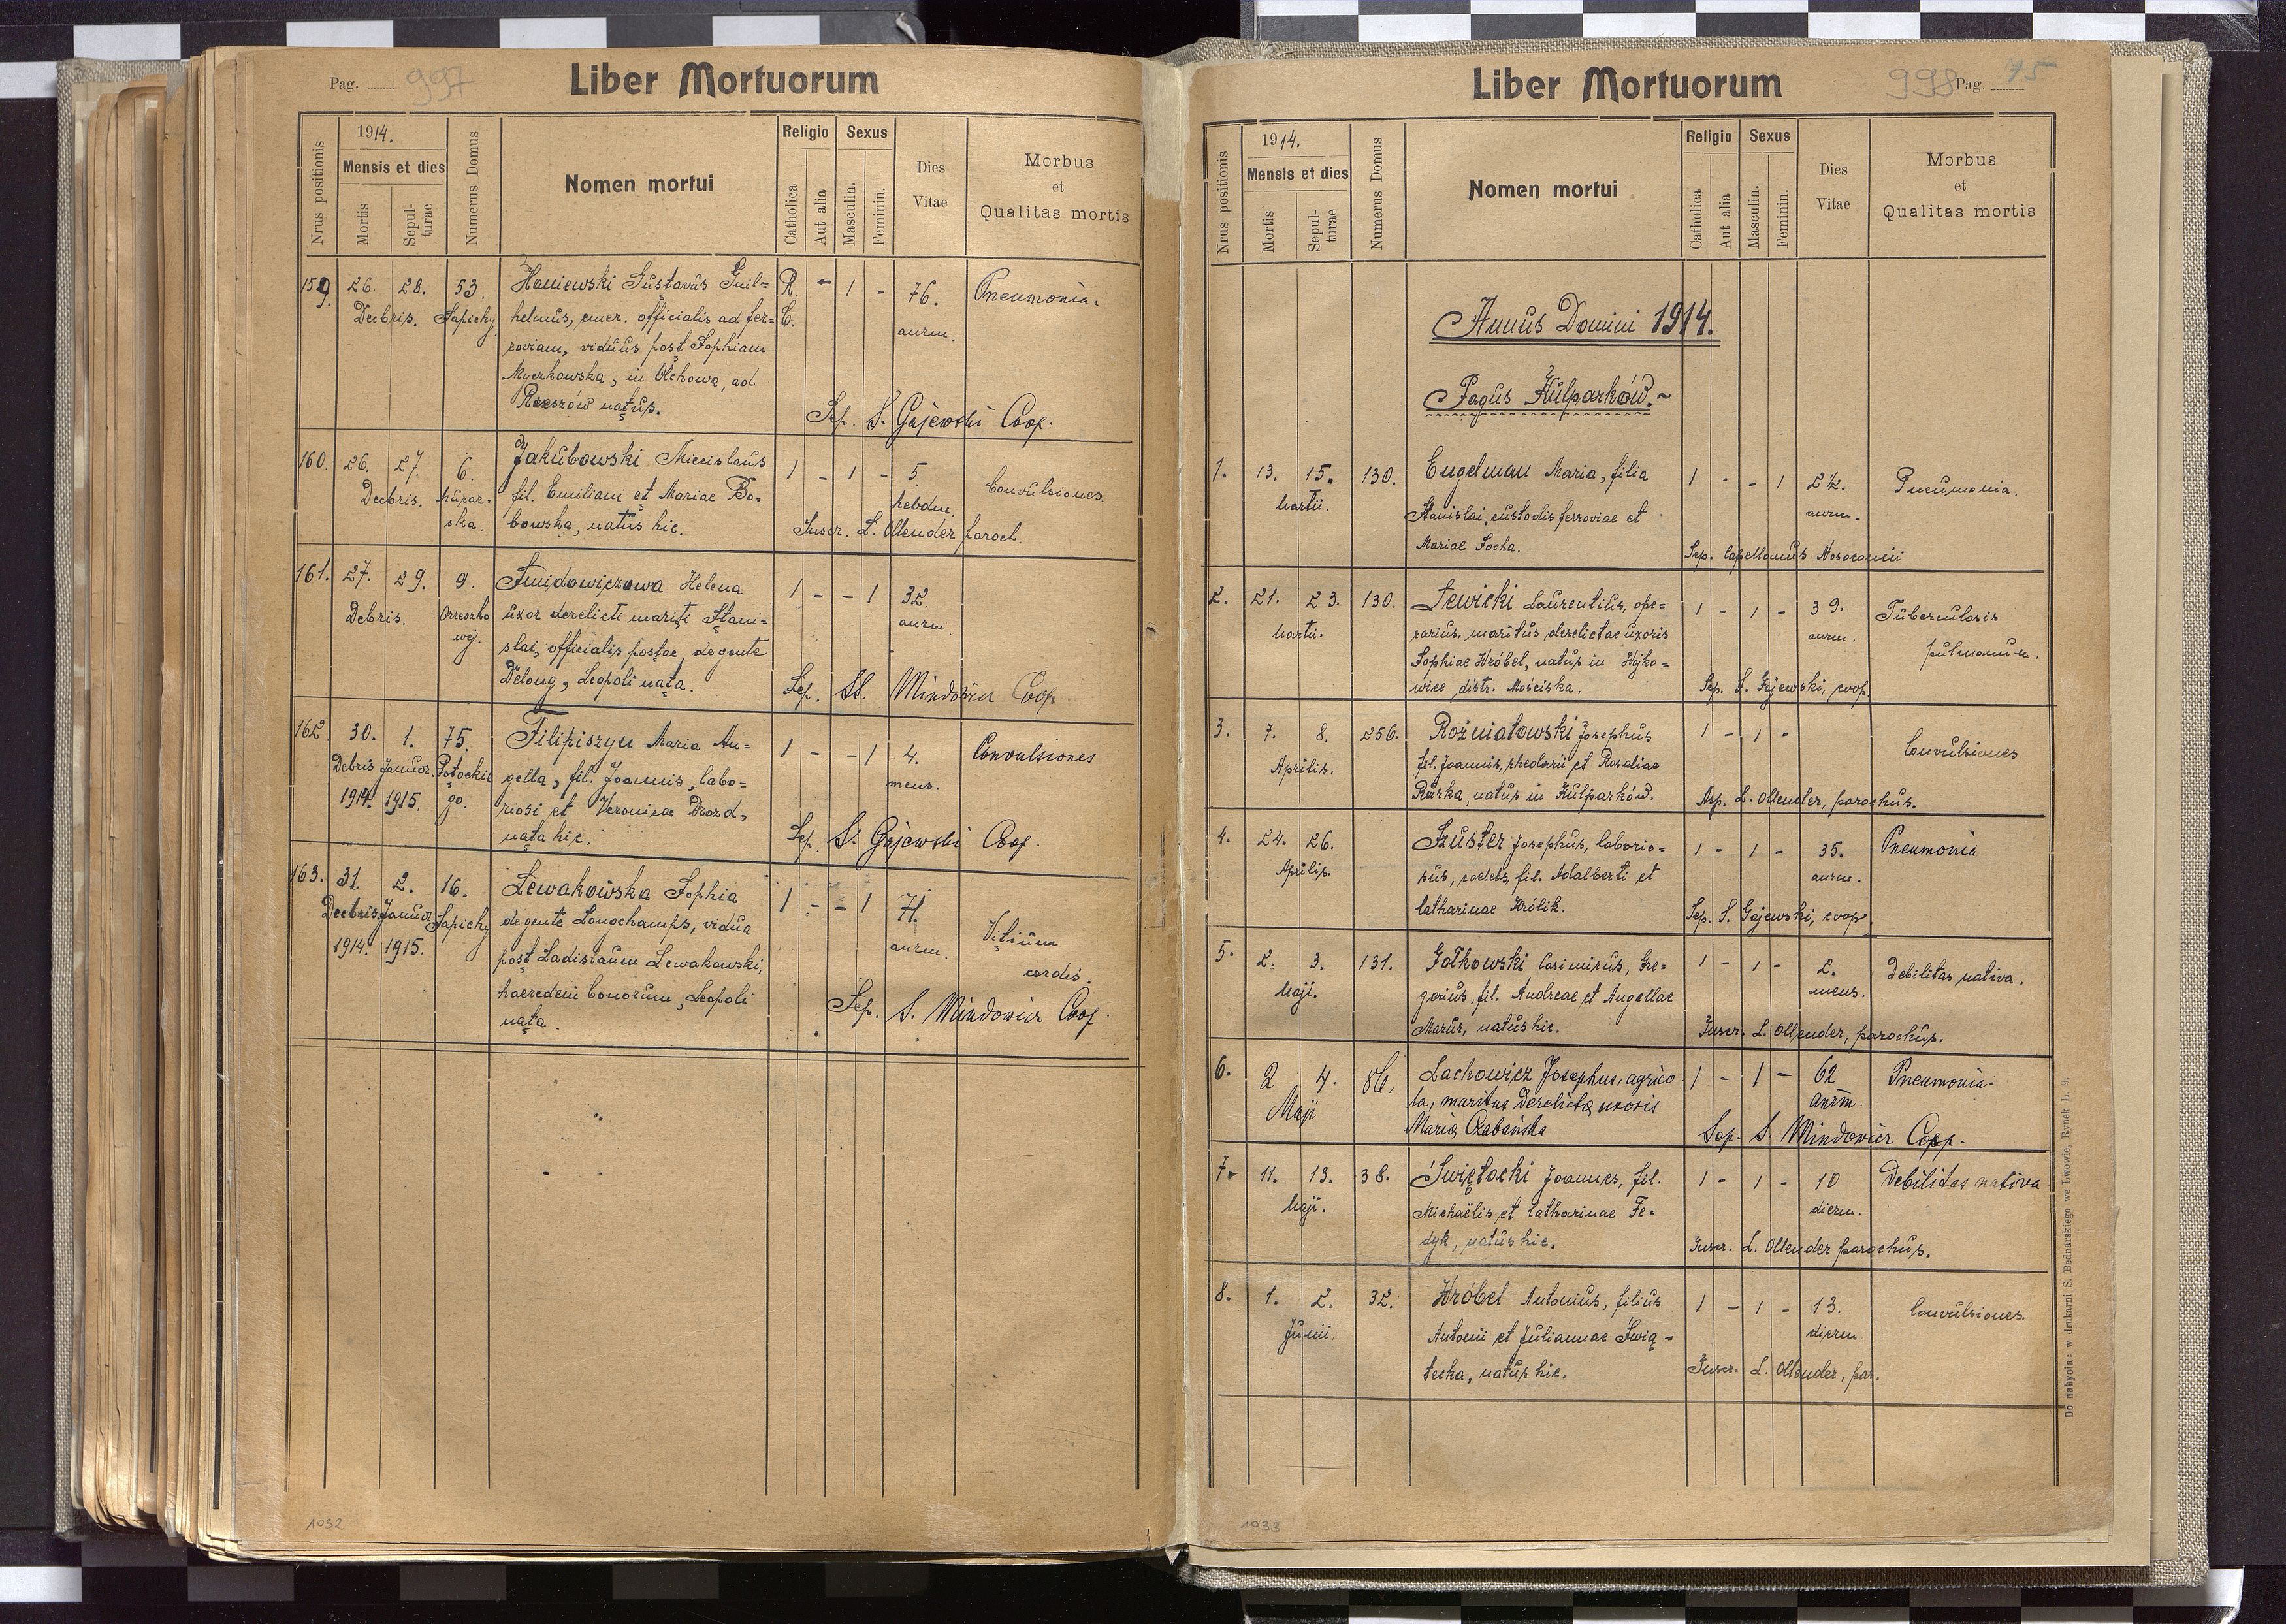 Pag. 997
Liber Mortuorum
Nrus positionis
1914.
Mensis et dies
Mortis
Sepulturae
Numerus Domus
Nomen mortui
Religio
Catholica
Aut alia
Sexus
Masculin.
Feminin.
Dies Vitae
Morbus et Qualitas mortis
159. 26. 28. 53. Haniewski Gustavus Guil= R. - 1 - 76. Pneumonia.
Decbris. Sapiehy helmus, emer. officialis ad fer= C. anrm.
roviam, viduus post Sophiam
Myczkowska, in Olchowa, ad
Rzeszów natus.
Sep. S. Gajewski Coop.
160. 26. 27. 6. Jakubowski Miecislaus 1 - 1 - 5. Convulsiones.
Decbris. Murar= fil. Emiliani et Mariae Bo= hebdm.
ska. bowska, natus hic.
Inscr. L. Ollender paroch.
161. 27. 29. 9. Helena 1 - - 1 32.
Debris. Orzeszko uxor derelicti mariti Stani= anrm.
wej. slai, officialis postae, de gente
Delong, Leopoli nata.
Sep. St. Mindowicz Coop
162. 30. 1. 75. Filipiszyn Maria An= 1 - - 1 4. Convulsiones
Debris Januar. Potockie gella, fil. Joannis, labo= mens.
1914. 1915. go. riosi et Veronicae Drozd,
nata hic.
Sep. S. Gajewski Coop.
163. 31. 2. 16. Lewakowska Sophia 1 - - 1 71. Vitium
Decbris Januar Sapiehy de gente Longchamps, vidua anrm. cordis.
1914. 1915. post Ladislaum Lewakowski,
haeredem bonorum, Leopoli
nata.
Sep. S. Mindowicz Coop.
1032
Liber Mortuorum
998 Pag. 75
Nrus positionis
1914.
Mensis et dies
Mortis
Sepulturae
Numerus Domus
Nomen mortui
Religio
Catholica
Aut alia
Sexus
Masculin.
Feminin.
Dies Vitae
Morbus et Qualitas mortis
Annus Domini 1914.
Pagus Kulparków.~
1. 13. 15. 130. Engelman Maria, filia 1 - - 1 Pneumonia.
Martii. Stanislai, custodis ferroviae et anrm.
Mariae Socha.
Sep. Capellanus Nosocomii
2. 21. 23. 130. Lewicki Laurentius, ope= 1 - 1 - 39. Tuberculosis
Martii. rarius, maritus derelictae uxoris anrm. pulmonum.
Sophiae Wróbel, natus in Wyko=
wice distr. Mościska.
Sep. S. Gajewski, coop.
3. 7. 8. 256. Rożniatowski Josephus 1 - 1 - Convulsiones
Aprilis. fil. Joannis, rhedarii et Rosaliae
natus in Kulparków.
Asp. L. Ollender, parochus.
4. 24. 26. Szuster Josephus, laborio= 1 - 1 - 35. Pneumonia
Aprilis sus, coelebs, fil. Adalberti et anrm.
Catharinae Królik.
Sep. S. Gajewski, coop
5. 2. 3. 131. Gołkowski Casimirus, Gre= 1 - 1 - 2. Debilitas nativa.
Maji. gorius, fil. Andreae et Angellae mens.
Mazur, natus hic.
Inscr. L. Ollender, parochus.
6. 2 4. 86. Lachowicz Josephus, agrico 1 - 1 - 62 Pneumonia.
Maji la, maritus derelictą uxoris anrm.
Marią Czabańska
Sep. S. Mindowicz Coop.
7. 11. 13. 38. Świętocki Joannes, fil. 1 - 1 - 10 Debilitas nativa
Maji. Michaëlis et Catharinae Fe= dierm.
dyk, natus hic.
Inscr. L. Ollender parochus.
8. 1. 2. 32. Wróbel Antonius, filius 1 - 1 - 13. Convulsiones.
Junii. Antonii et Juliannae Świą= dierm.
tecka, natus hic.
Inscr. L. Ollender, par.
Do nabycia: w drukarni S. Bednarskiego we Lwowie, Rynek L. 9.
1033